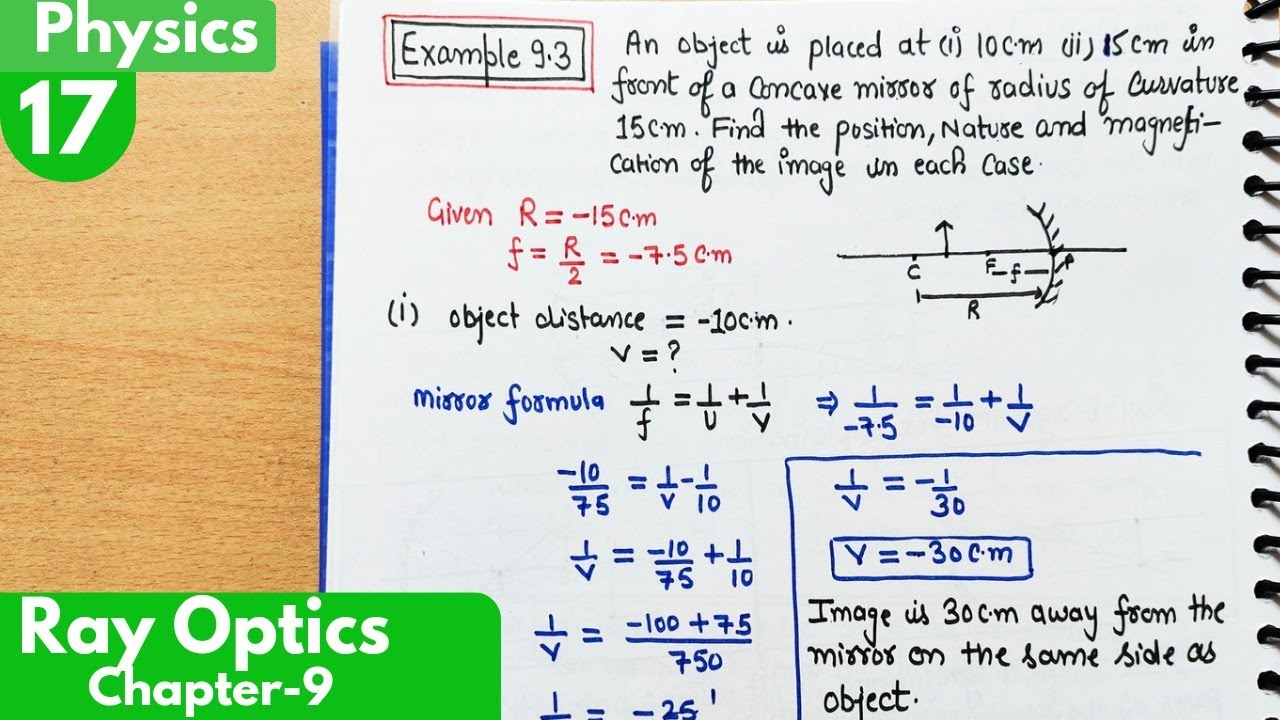 Physics
17
Example 9.3
An object is placed at (i) 10cm (ii) 15cm in
front of a Concave mirror of radius of Curvature
15cm. Find the position, Nature and magnefi-
cation of the image in each Case.
Given R = -15c.m
f = R/2 = -7.5c.m
C F f P
R
(i) object distance = -10c.m.
v = ?
mirror formula 1/f = 1/u + 1/v ⇒ 1/-7.5 = 1/-10 + 1/v
-10/75 = 1/v - 1/10
1/v = -10/75 + 1/10
1/v = -100 + 75/750
1 = -25 1
1/v = -1/30
v = -30c.m
Image is 30c.m away from the
mirror on the same side as
object.
Ray Optics
Chapter-9